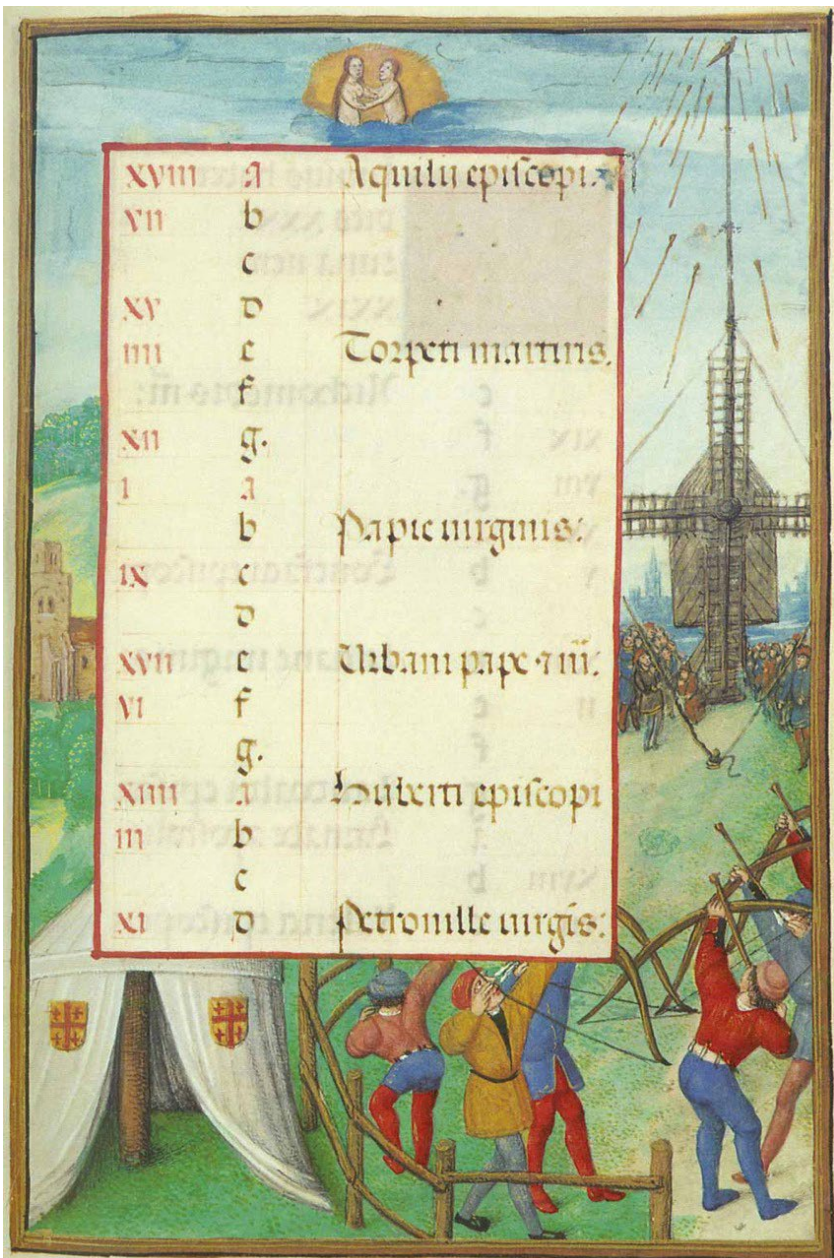 xviii a Aquilij episcopi.
vii b
c
xv d
iiii e Torpeti martiris.
f
xii g.
i a
b Papie uirginis:
ix c
d
xvii e Urbani pape · iiii:
vi f
g.
xiiii a Huberti episcopi
iii b
c
xi d Petronille uirgis: